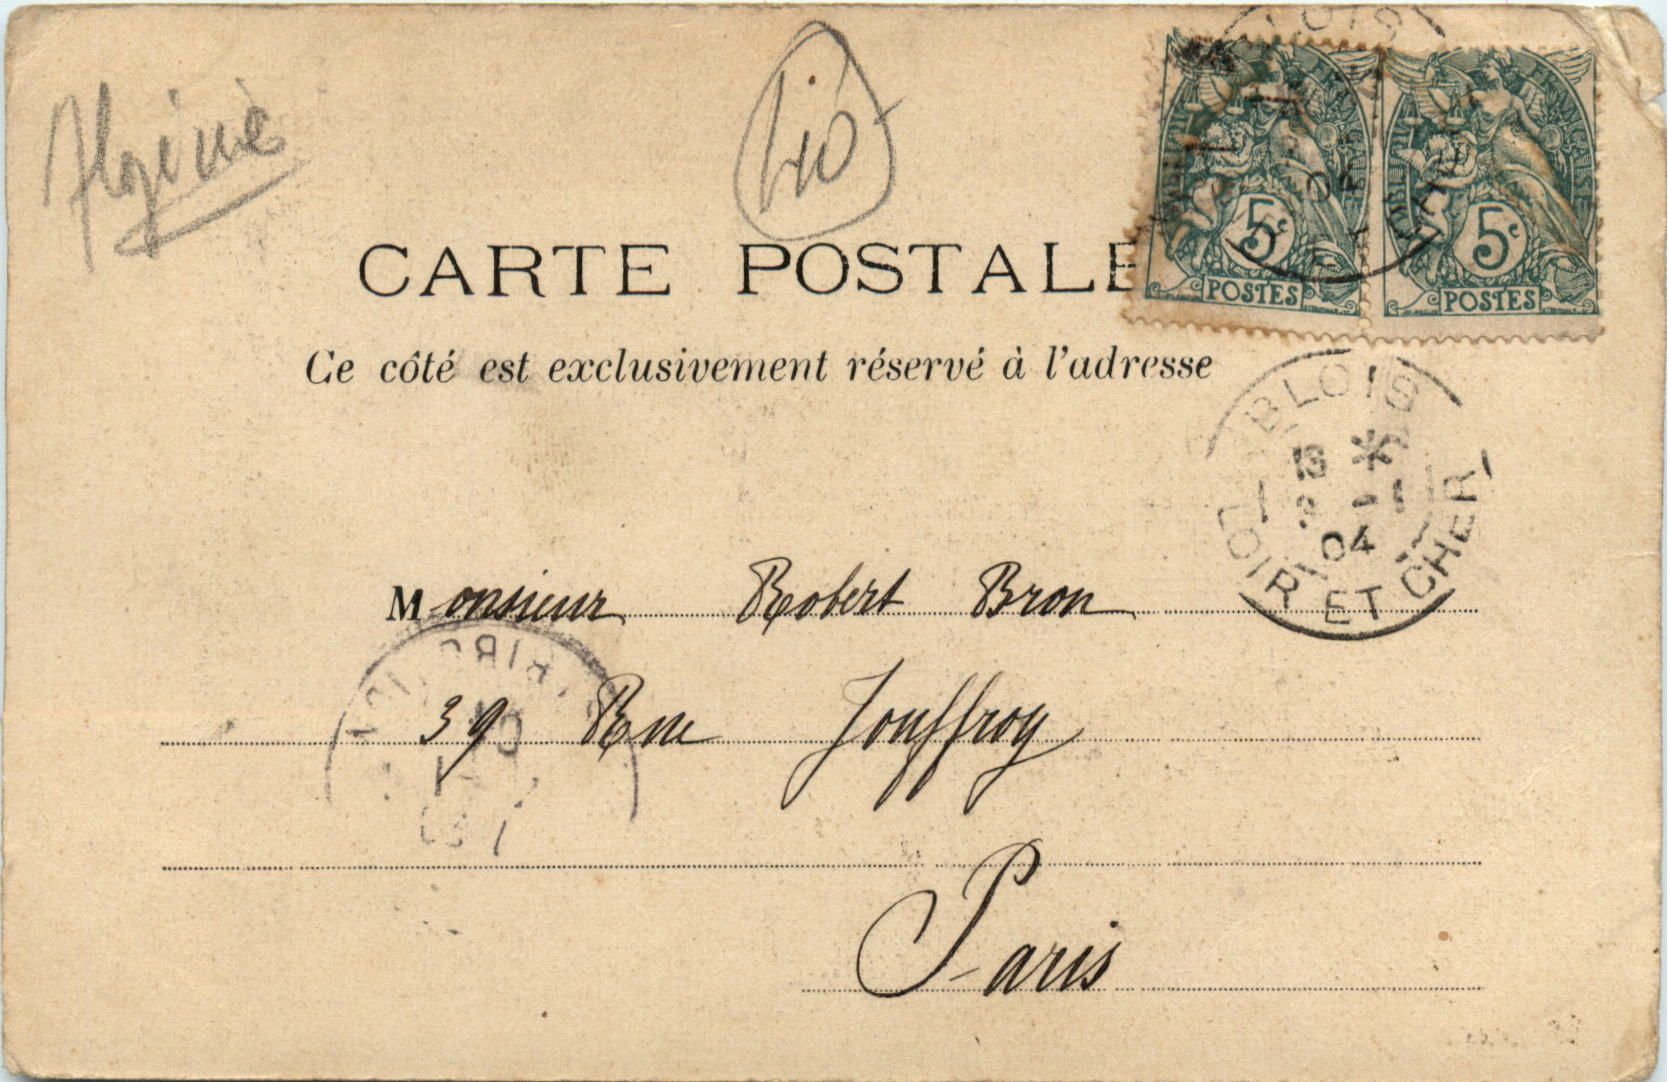 Algérie
CARTE POSTALE
Ce côté est exclusivement réservé à l'adresse
5c
POSTES
5c
POSTES
BLOIS
13 *
3 -1
04
LOIR ET CHER
Monsieur Robert Bron
39 Rue Jouffroy
Paris